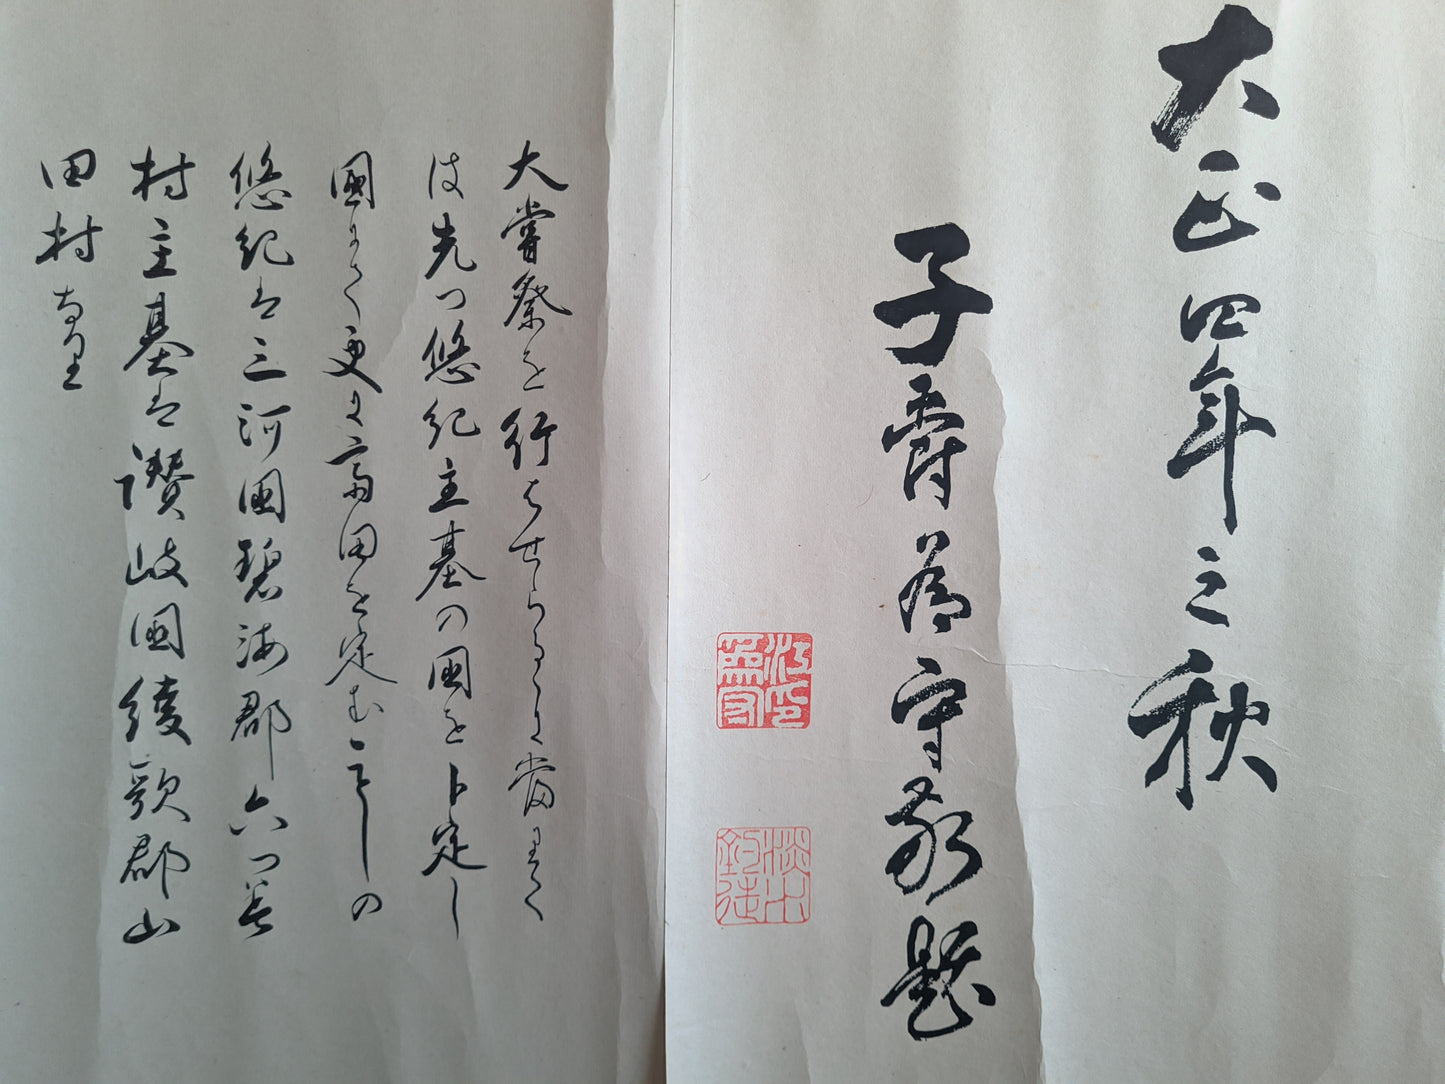 大正四年之秋
子爵為守敬題
江印為守
大嘗祭を行はせらるゝに當りて
は先つ悠紀主基の國を卜定し
國にて更に齋田を定む の
悠紀は三河國碧海郡六ツ美
村主基は讃岐國綾歌郡山
田村なり